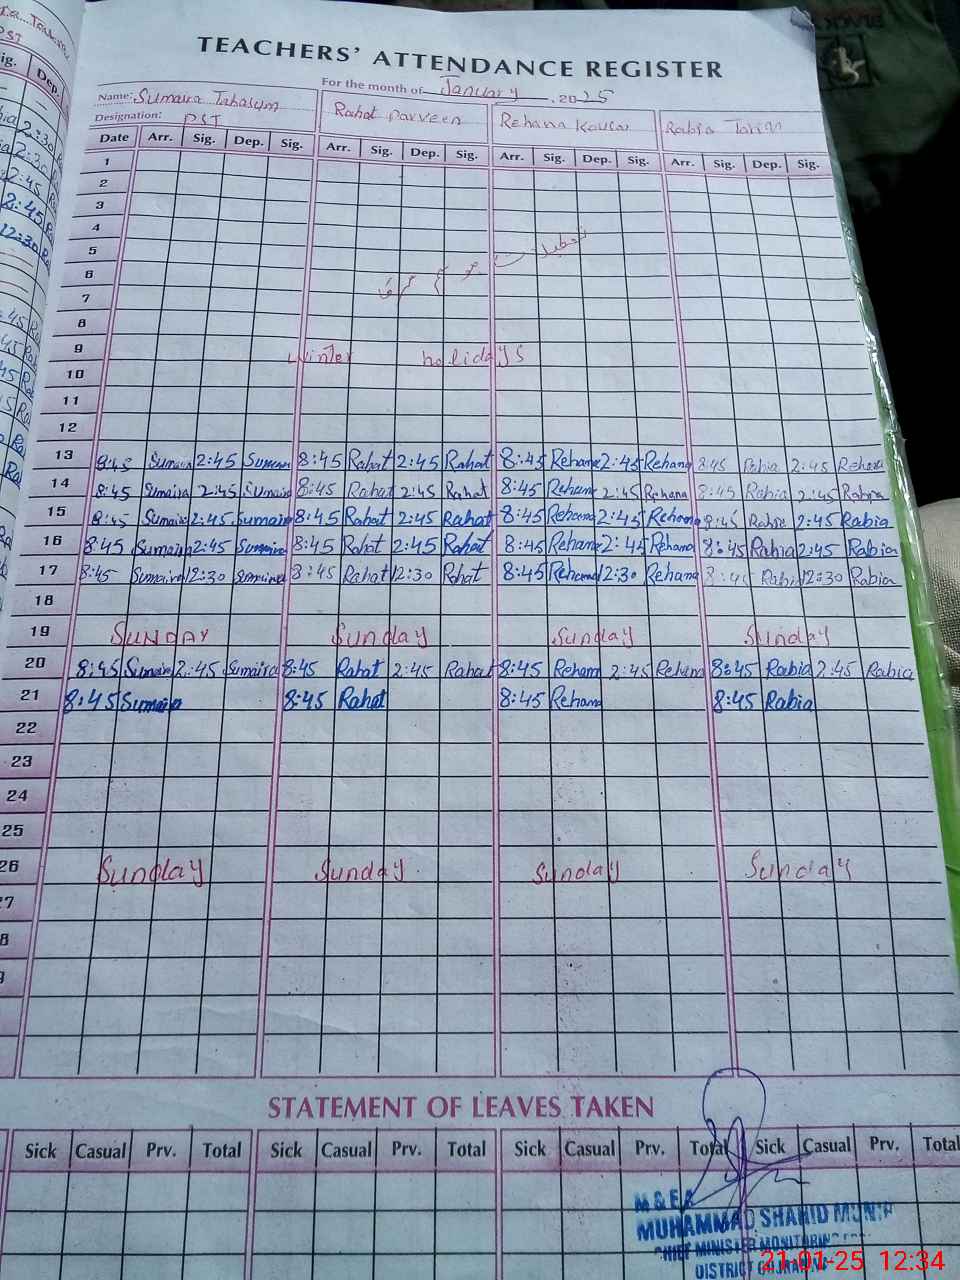 TEACHERS' ATTENDANCE REGISTER
For the month of January 2025
Name: Sumaira Tabasum Rahat Parveen Rehana Kousar Rabia
Designation: PST
Date Arr. Sig. Dep. Sig. Arr. Sig. Dep. Sig. Arr. Sig. Dep. Sig. Arr. Sig. Dep. Sig.
1
2
3
4
تعطیلات موسم
5
6
7
8
9 Winter holidays
10
11
12
13 8:45 Sumaira 2:45 Sumaira 8:45 Rahat 2:45 Rahat 8:45 Rehana 2:45 Rehana 8:45 Rabia 2:45 Rehana
14 8:45 Sumaira 2:45 Sumaira 8:45 Rahat 2:45 Rahat 8:45 Rehana 2:45 Rehana 8:45 Rabia 2:45 Rabia
15 8:45 Sumaira 2:45 Sumaira 8:45 Rahat 2:45 Rahat 8:45 Rehana 2:45 Rehana 8:45 Rabia 2:45 Rabia
16 8:45 Sumaira 2:45 Sumaira 8:45 Rahat 2:45 Rahat 8:45 Rehana 2:45 Rehana 8:45 Rabia 2:45 Rabia
17 8:45 Sumaira 12:30 Sumaira 8:45 Rahat 12:30 Rahat 8:45 Rehana 12:30 Rehana 8:45 Rabia 12:30 Rabia
18
19 SUNDAY Sunday Sunday Sunday
20 8:45 Sumaira 2:45 Sumaira 8:45 Rahat 2:45 Rahat 8:45 Rehana 2:45 Rehana 8:45 Rabia 2:45 Rabia
21 8:45 Sumaira 8:45 Rahat 8:45 Rehana 8:45 Rabia
22
23
24
25
26 Sunday Sunday Sunday Sunday
27
STATEMENT OF LEAVES TAKEN
Sick Casual Prv. Total Sick Casual Prv. Total Sick Casual Prv. Total Sick Casual Prv. Total
M & E A
MUHAMMAD SHAHID MUNIR
CHIEF MINISTER MONITORING
DISTRICT
21-01-25 12:34